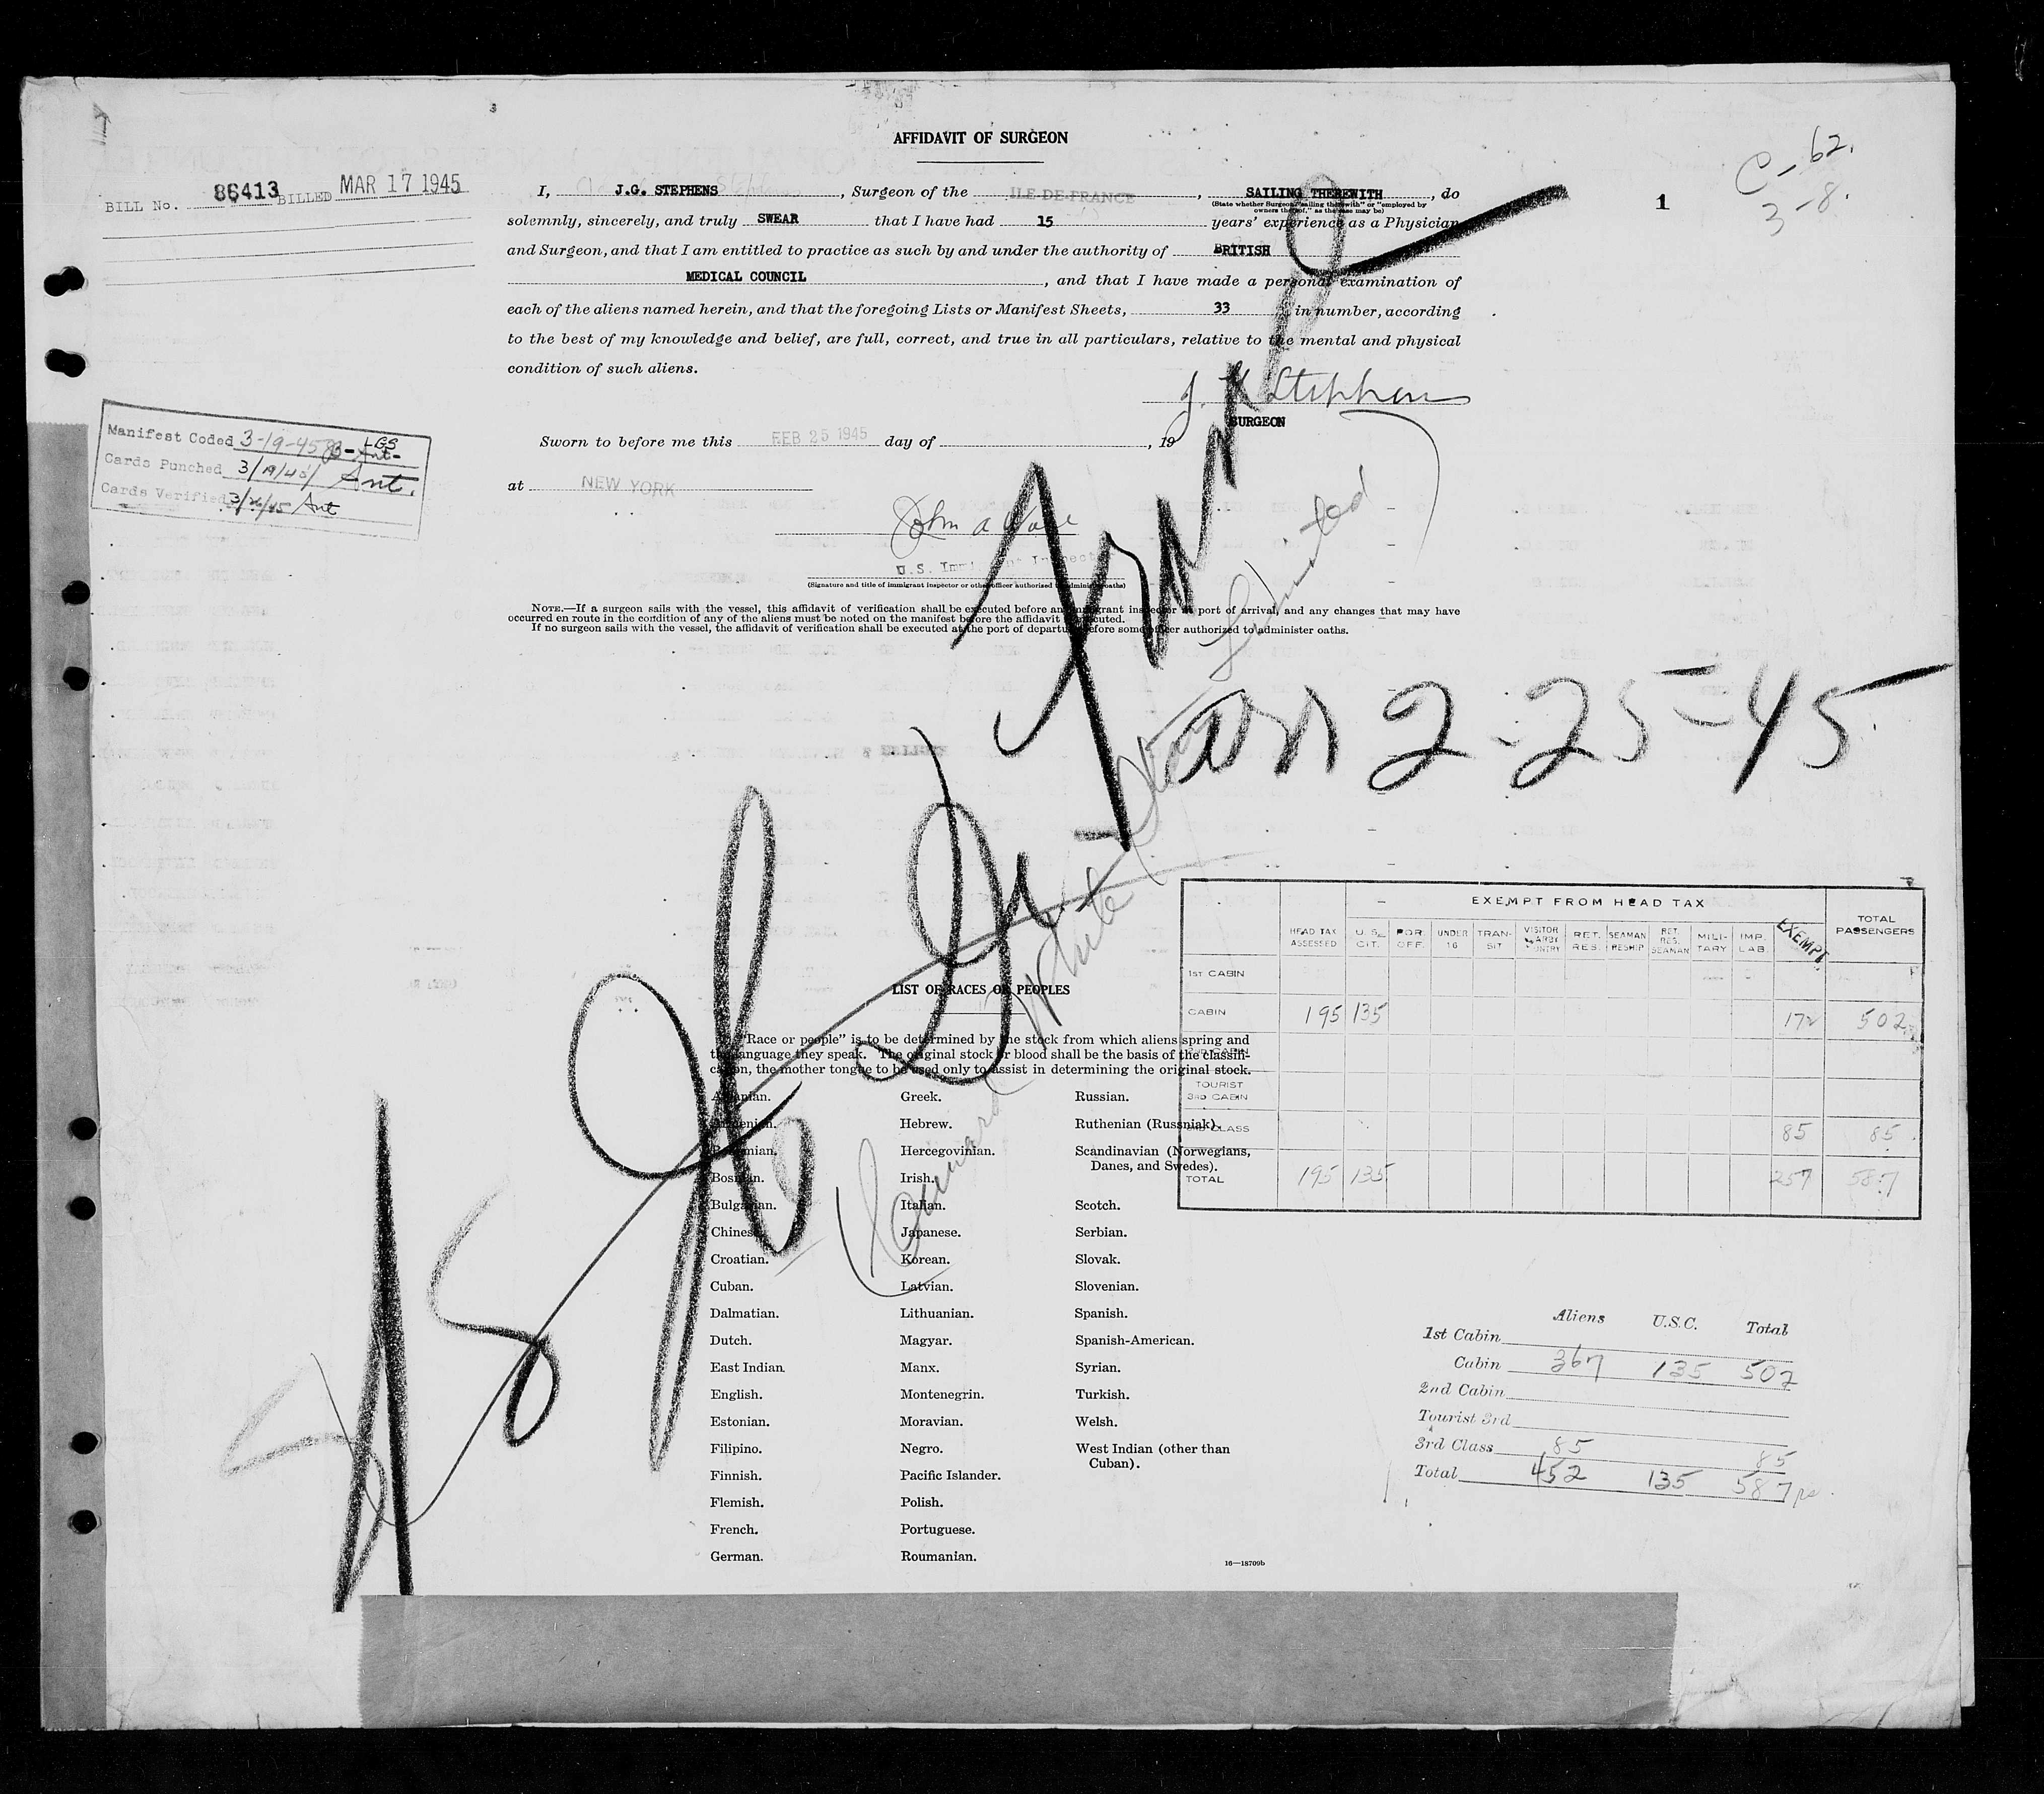 AFFIDAVIT OF SURGEON
C-62.
3-8.
1
BILL No. 86413 BILLED MAR 17 1945
I, J.G. STEPHENS, Surgeon of the ILE DE FRANCE, SAILING THEREWITH, do
(State whether Surgeon "sailing therewith" or "employed by
owners thereof," as the case may be)
solemnly, sincerely, and truly SWEAR that I have had 15 years' experience as a Physician
and Surgeon, and that I am entitled to practice as such by and under the authority of BRITISH
MEDICAL COUNCIL, and that I have made a personal examination of
each of the aliens named herein, and that the foregoing Lists or Manifest Sheets, 33 in number, according
to the best of my knowledge and belief, are full, correct, and true in all particulars, relative to the mental and physical
condition of such aliens.
J. G. Stephens
SURGEON
Sworn to before me this FEB 25 1945 day of , 19
at NEW YORK
Manifest Coded 3-19-45 LGS
Cards Punched 3/19/45 Ant.
Cards Verified 3/26/45 Ant
John A
U.S. Immigrant Inspector
(Signature and title of immigrant inspector or other officer authorized to administer oaths)
NOTE.—If a surgeon sails with the vessel, this affidavit of verification shall be executed before an immigrant inspector at port of arrival, and any changes that may have
occurred en route in the condition of any of the aliens must be noted on the manifest before the affidavit is executed.
If no surgeon sails with the vessel, the affidavit of verification shall be executed at the port of departure before some officer authorized to administer oaths.
SS Ile De France
arr 2-25-45
Cunard White Star Limited
EXEMPT FROM HEAD TAX
HEAD TAX ASSESSED U.S. CIT. POR. OFF. UNDER 16 TRANSIT VISITOR NEARBY COUNTRY RET. RES. SEAMAN RESHIP RET. RES. SEAMAN MILITARY IMP. LAB. EXEMPT TOTAL PASSENGERS
1ST CABIN
CABIN 195 135 172 502
2ND CABIN
TOURIST
3RD CABIN
3RD CLASS 85 85
TOTAL 195 135 257 587
LIST OF RACES OR PEOPLES
"Race or people" is to be determined by the stock from which aliens spring and
the language they speak. The original stock or blood shall be the basis of the classifi-
cation, the mother tongue to be used only to assist in determining the original stock.
Albanian.
Armenian.
Bohemian.
Bosnian.
Bulgarian.
Chinese.
Croatian.
Cuban.
Dalmatian.
Dutch.
East Indian
English.
Estonian.
Filipino.
Finnish.
Flemish.
French.
German.
Greek.
Hebrew.
Hercegovinian.
Irish.
Italian.
Japanese.
Korean.
Latvian.
Lithuanian.
Magyar.
Manx.
Montenegrin.
Moravian.
Negro.
Pacific Islander.
Polish.
Portuguese.
Roumanian.
Russian.
Ruthenian (Russniak).
Scandinavian (Norwegians,
Danes, and Swedes).
Scotch.
Serbian.
Slovak.
Slovenian.
Spanish.
Spanish-American.
Syrian.
Turkish.
Welsh.
West Indian (other than
Cuban).
16—18709b
Aliens U.S.C. Total
1st Cabin
Cabin 367 135 502
2nd Cabin
Tourist 3rd
3rd Class 85 85
Total 452 135 587